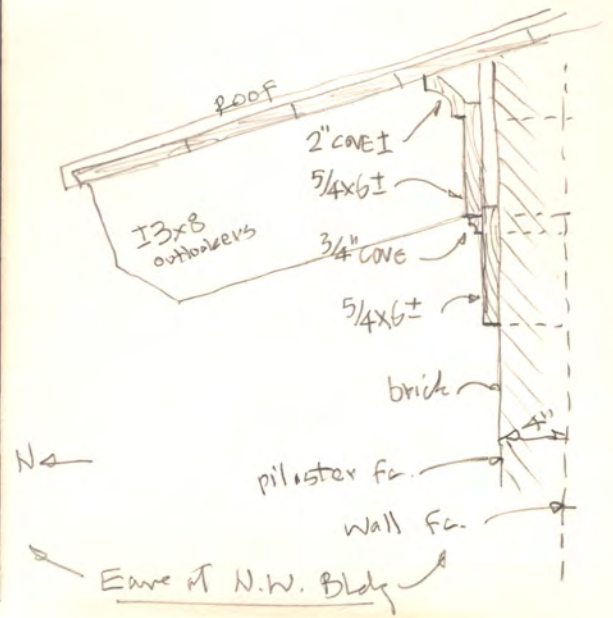 ROOF
2" COVE ±
5/4x6±
±3x8
outlookers
3/4" COVE
5/4x6±
brick
4"
N
pilaster fc.
Wall fc.
Eave at N.W. Bldg